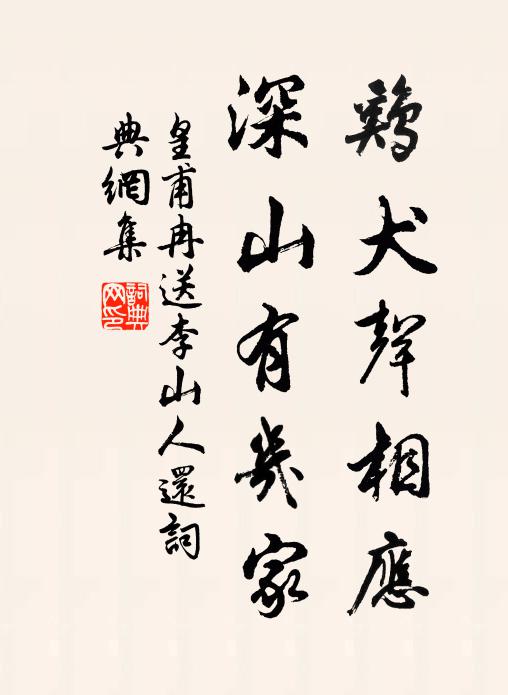 鷄犬聲相應
深山有幾家
皇甫冉送李山人還詞
典網集
詞典
网印